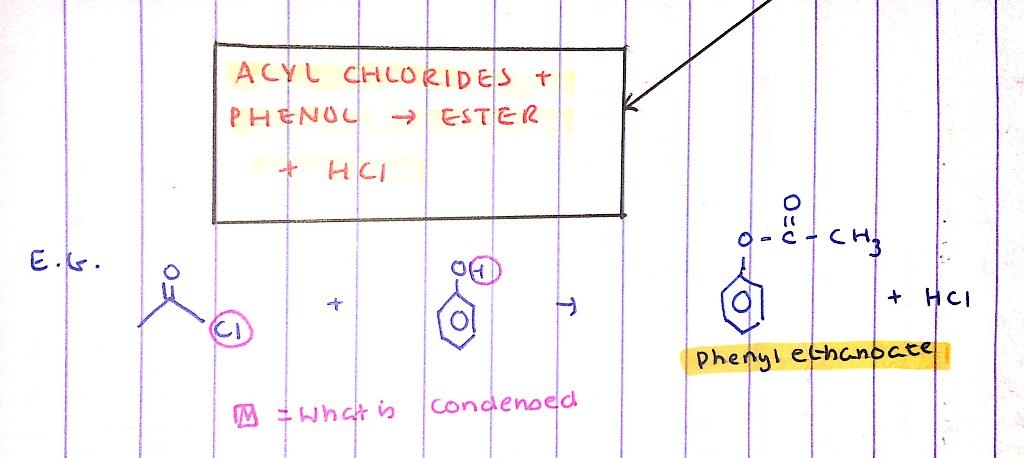 ACYL CHLORIDES +
PHENOL → ESTER
+ HCl
E.G.
O
Cl
+
OH
→
O
O - C - CH3
+ HCl
Phenyl ethanoate
= What is condensed